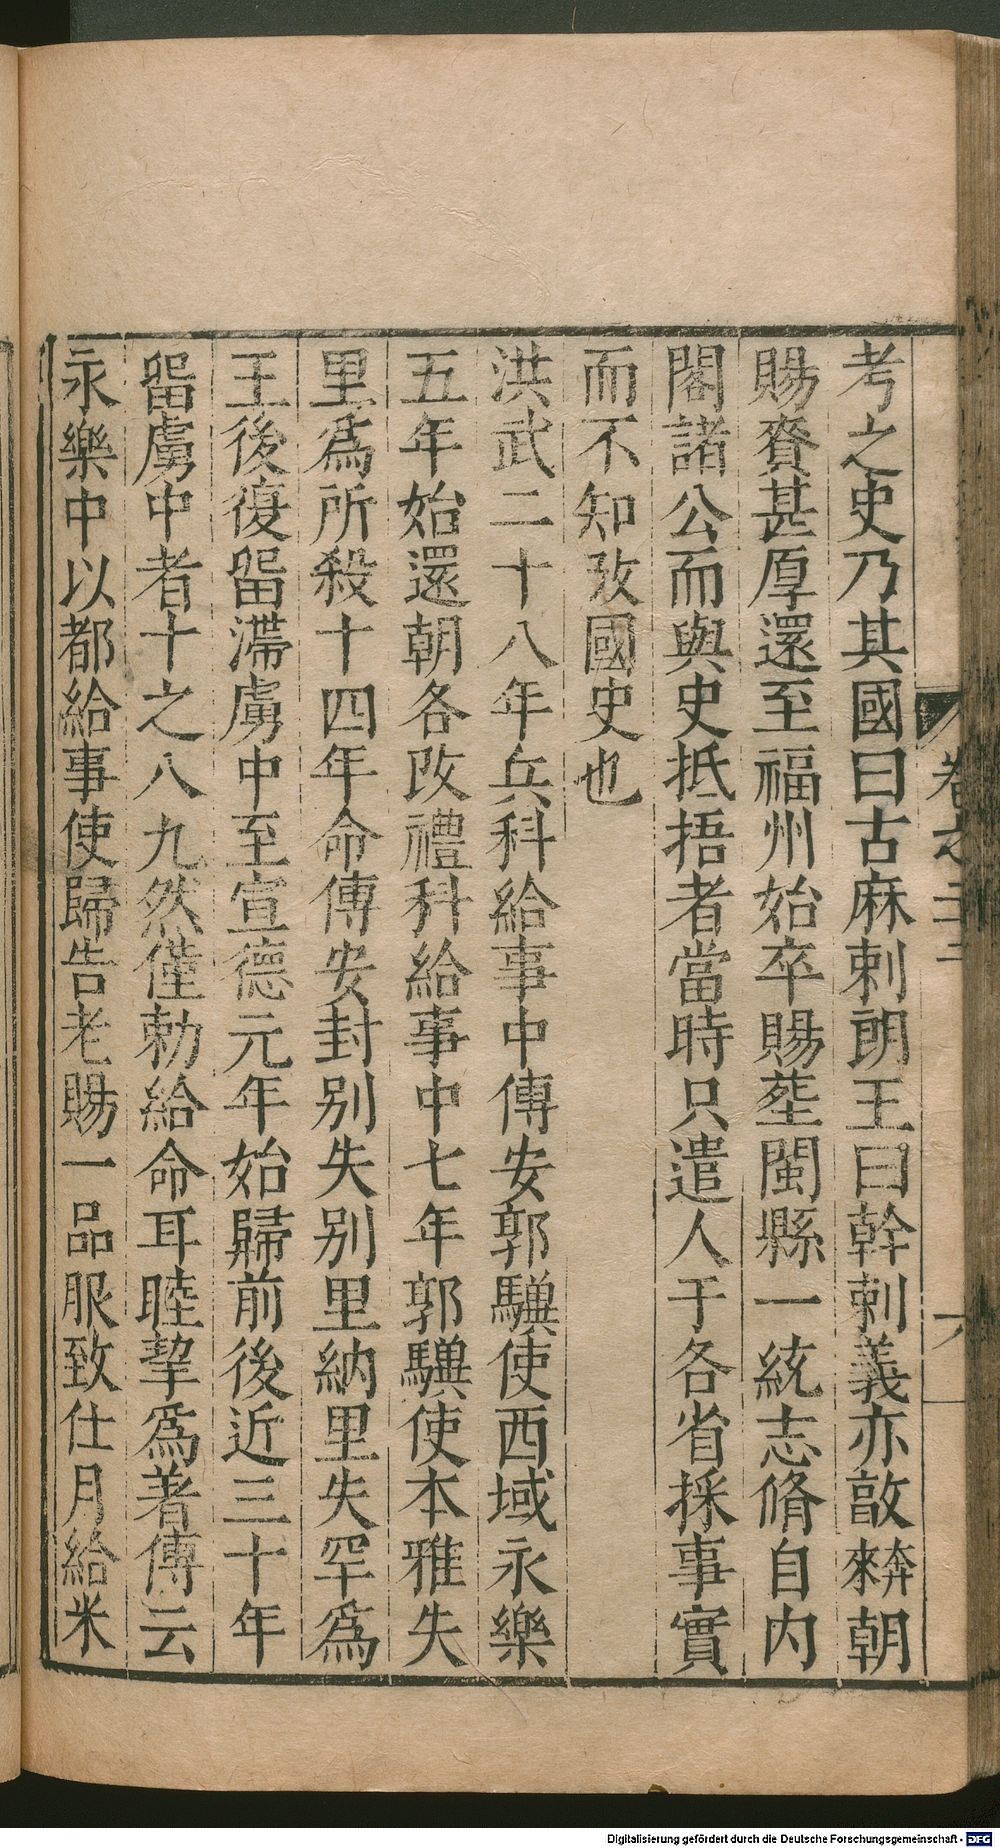 考之史乃其國曰古麻剌朗王曰幹剌義亦敨奔來朝
賜賚甚厚還至福州始卒賜塟閩縣一統志脩自內
閣諸公而與史抵捂者當時只遣人于各省採事實
而不知攷國史也
洪武二十八年兵科給事中傅安郭驥使西域永樂
五年始還朝各改禮科給事中七年郭驥使本雅失
里爲所殺十四年命傅安封別失別里納里失罕爲
王後復留滯虜中至宣德元年始歸前後近三十年
留虜中者十之八九然僅勅給命耳睦挈爲著傳云
永樂中以都給事使歸告老賜一品服致仕月給米
卷之三
Digitalisierung gefördert durch die Deutsche Forschungsgemeinschaft - DFG